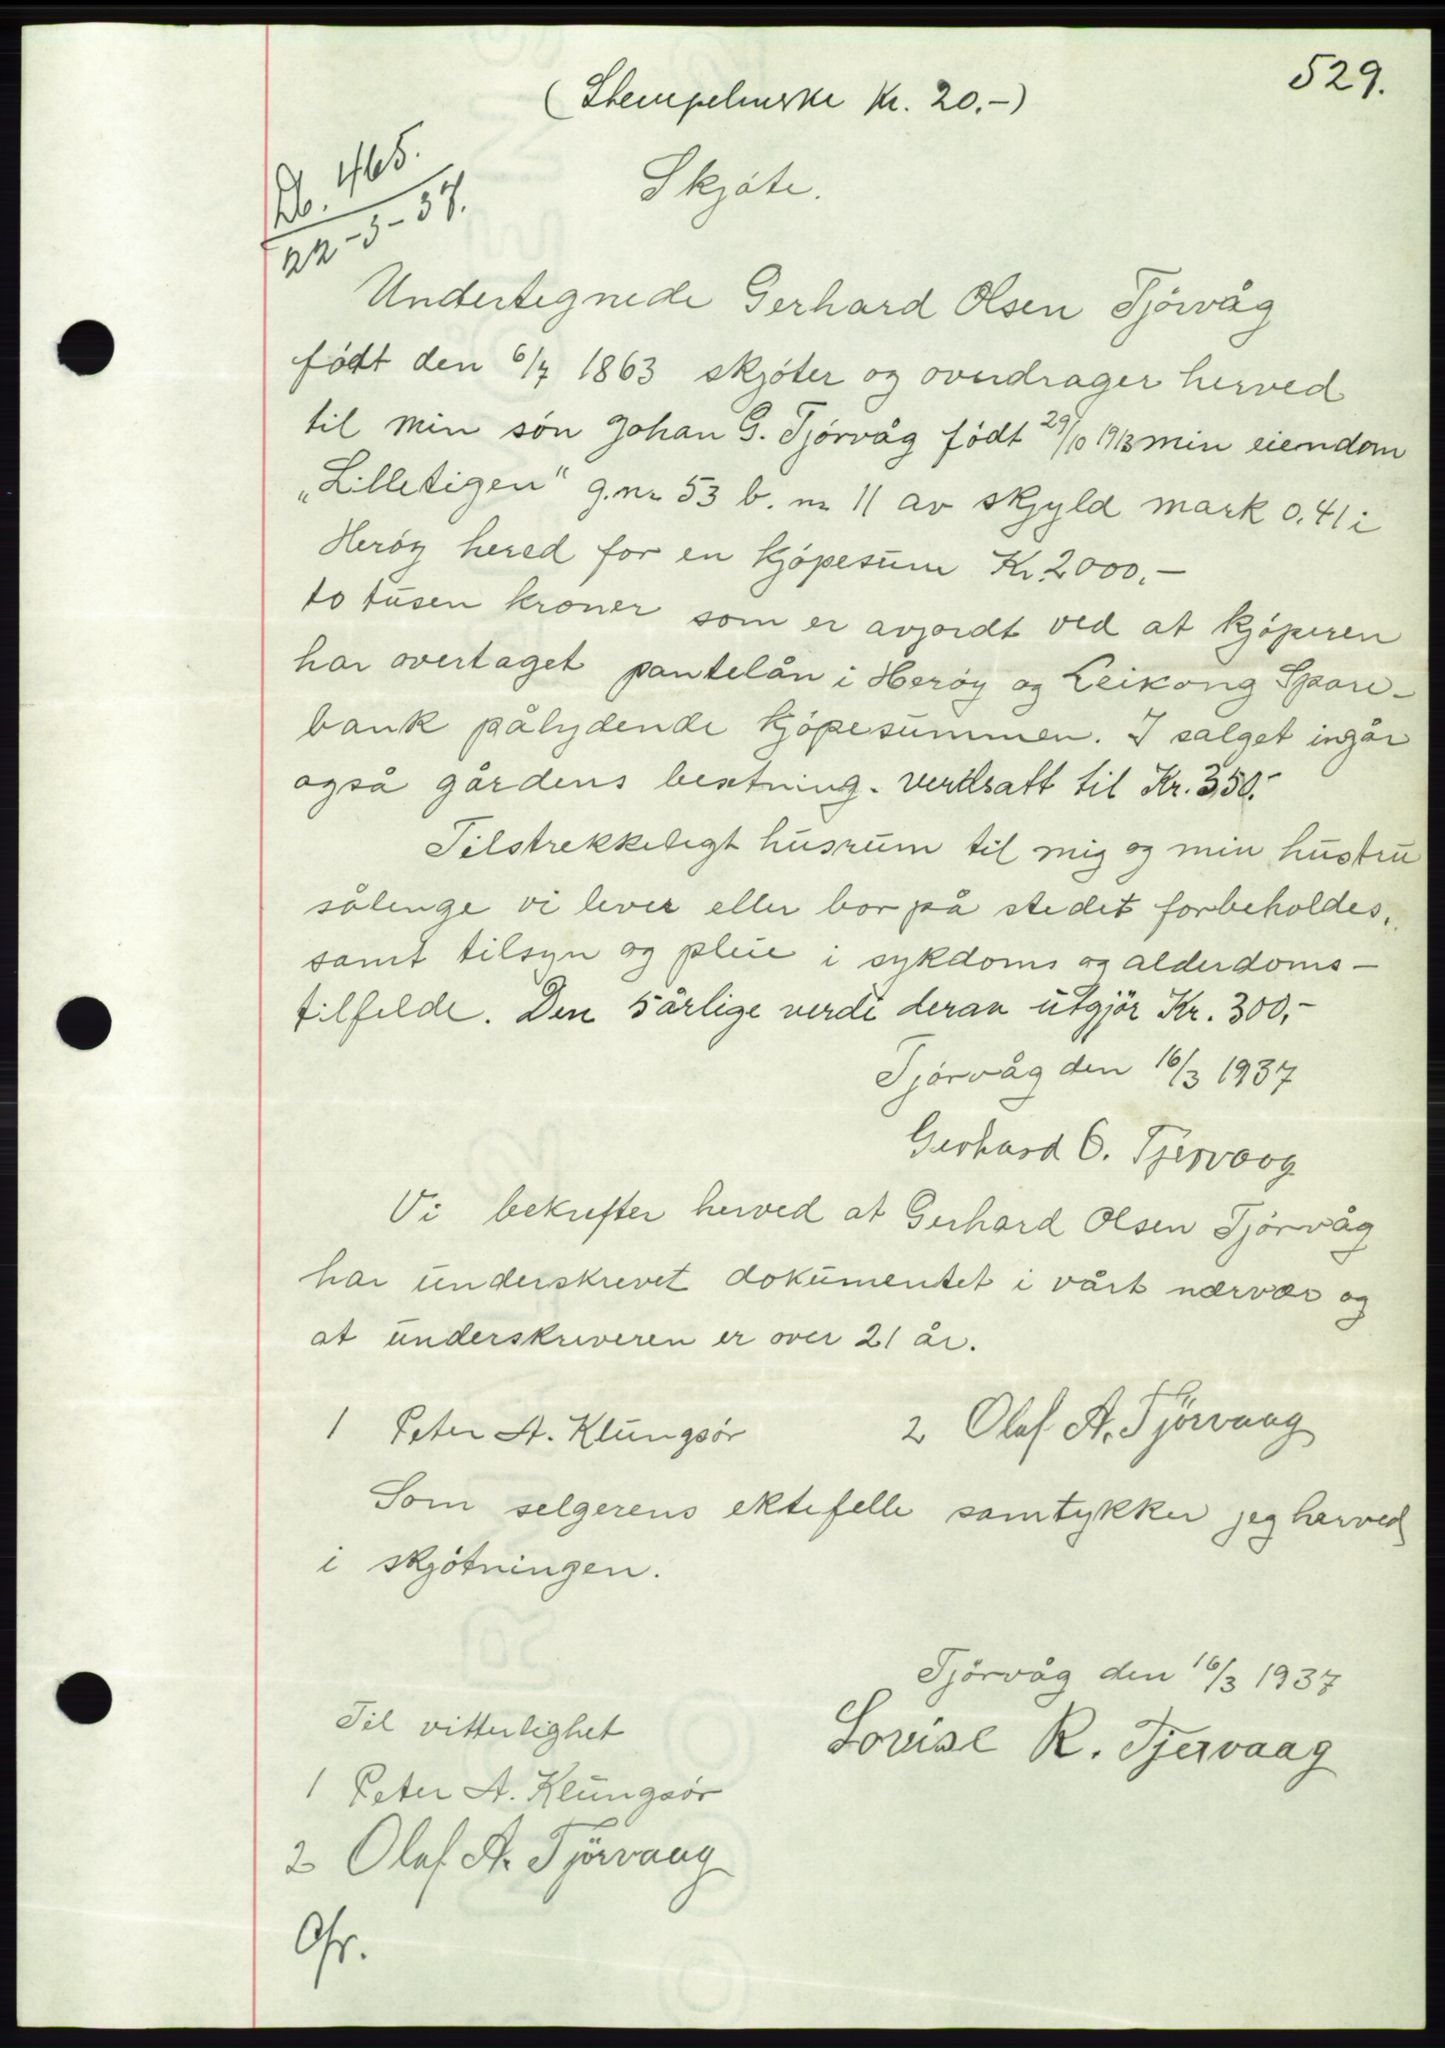 529.
(Stempelmerke Kr. 20.-)
Db. 465.
22-3-37.
Skjöte.
Undertegnede Gerhard Olsen Tjörvåg
födt den 6/7 1863 skjöter og overdrager herved
til min sön Johan G. Tjörvåg födt 29/10 1913 min eiendom
„Lilletigen" g.nr 53 b. nr 11 av skjyld mark 0,41 i
Heröy hered for en kjöpesum Kr. 2000,-
to tusen kroner som er avjordt ved at kjöperen
har overtaget pantelån i Heröy og Leikong Spare-
bank pålydende kjöpesummen. I salget ingår
også gårdens besetning. verdsatt til Kr. 350,-
Tilstrekkeligt husrum til mig og min hustru
sålenge vi lever eller bor på stedet forbeholdes,
samt tilsyn og pleie i sykdoms og alderdoms-
tilfelde. Den 5 årlige verdi derav utgjör Kr. 300,-
Tjörvåg den 16/3 1937
Gerhard O. Tjervaag
Vi bekrefter herved at Gerhard Olsen Tjörvåg
har underskrevet dokumentet i vårt nærvær og
at underskriveren er over 21 år.
1 Peter A. Klungsör 2 Olaf A. Tjörvaag
Som selgerens ektefelle samtykker jeg herved
i skjötningen.
Tjörvåg den 16/3 1937
Lovise R. Tjervaag
Til vitterlighet
1 Peter A. Klungsör
2 Olaf A. Tjörvaag